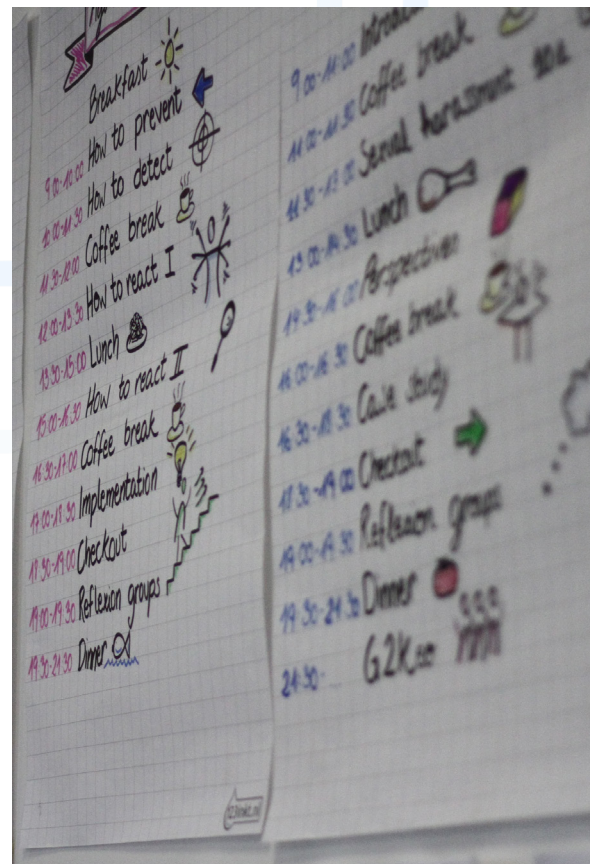 Breakfast
9:00-10:00 How to prevent
10:00-11:30 How to detect
11:30-12:00 Coffee break
12:00-13:30 How to react I
13:30-15:00 Lunch
15:00-16:30 How to react II
16:30-17:00 Coffee break
17:00-18:30 Implementation
18:30-19:00 Checkout
19:00-19:30 Reflexion groups
19:30-21:30 Dinner
9:00-11:00
11:00-11:30 Coffee break
11:30-13:00 Sexual harassment
13:00-14:30 Lunch
14:30-16:00 Perspectives
16:00-16:30 Coffee break
16:30-18:30 Case study
18:30-19:00 Checkout
19:00-19:30 Reflexion groups
19:30-21:30 Dinner
21:30-...